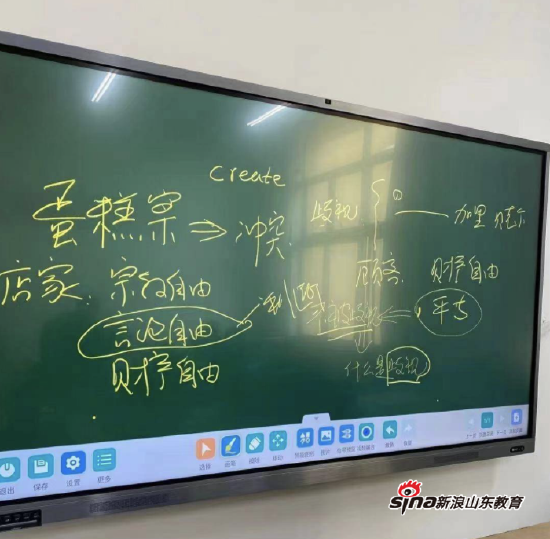 create
蛋糕案 ⇒ 冲突
歧视
加里 贝克尔
店家: 宗教自由
顾客: 财产自由
言论自由
平等
财产自由
什么是歧视
退出
保存
设置
更多
选择
画笔
擦除
移动
撤销
恢复
sina新浪山东教育